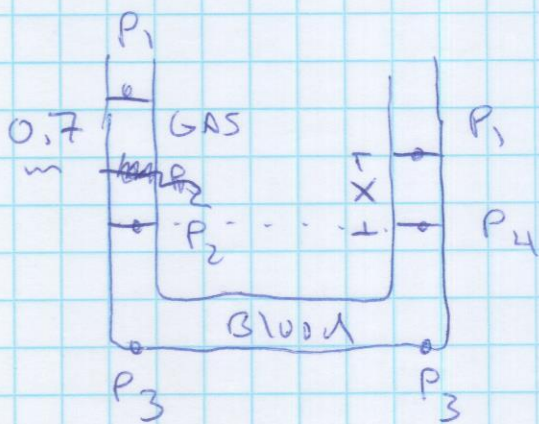 P₁
0,7 GAS P₁
m X
P₂ P₄
Blood
P₃ P₃